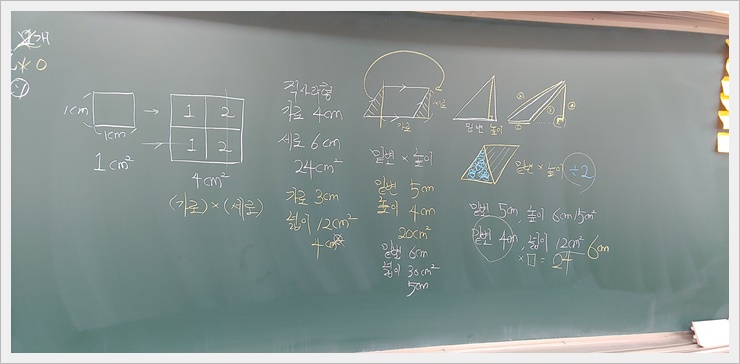 1cm
1cm
1cm²
1 2
1 2
4cm²
(가로)×(세로)
직사각형
가로 4cm
세로 6cm
24cm²
가로 3cm
넓이 12cm²
4cm
가로
세로
밑변 × 높이
밑변 5cm
높이 4cm
20cm²
밑변 6cm
넓이 30cm²
5cm
밑변 높이
밑변 × 높이 ÷2
밑변 5cm, 높이 6cm 15cm²
밑변 4cm, 넓이 12cm² 6cm
×□=24